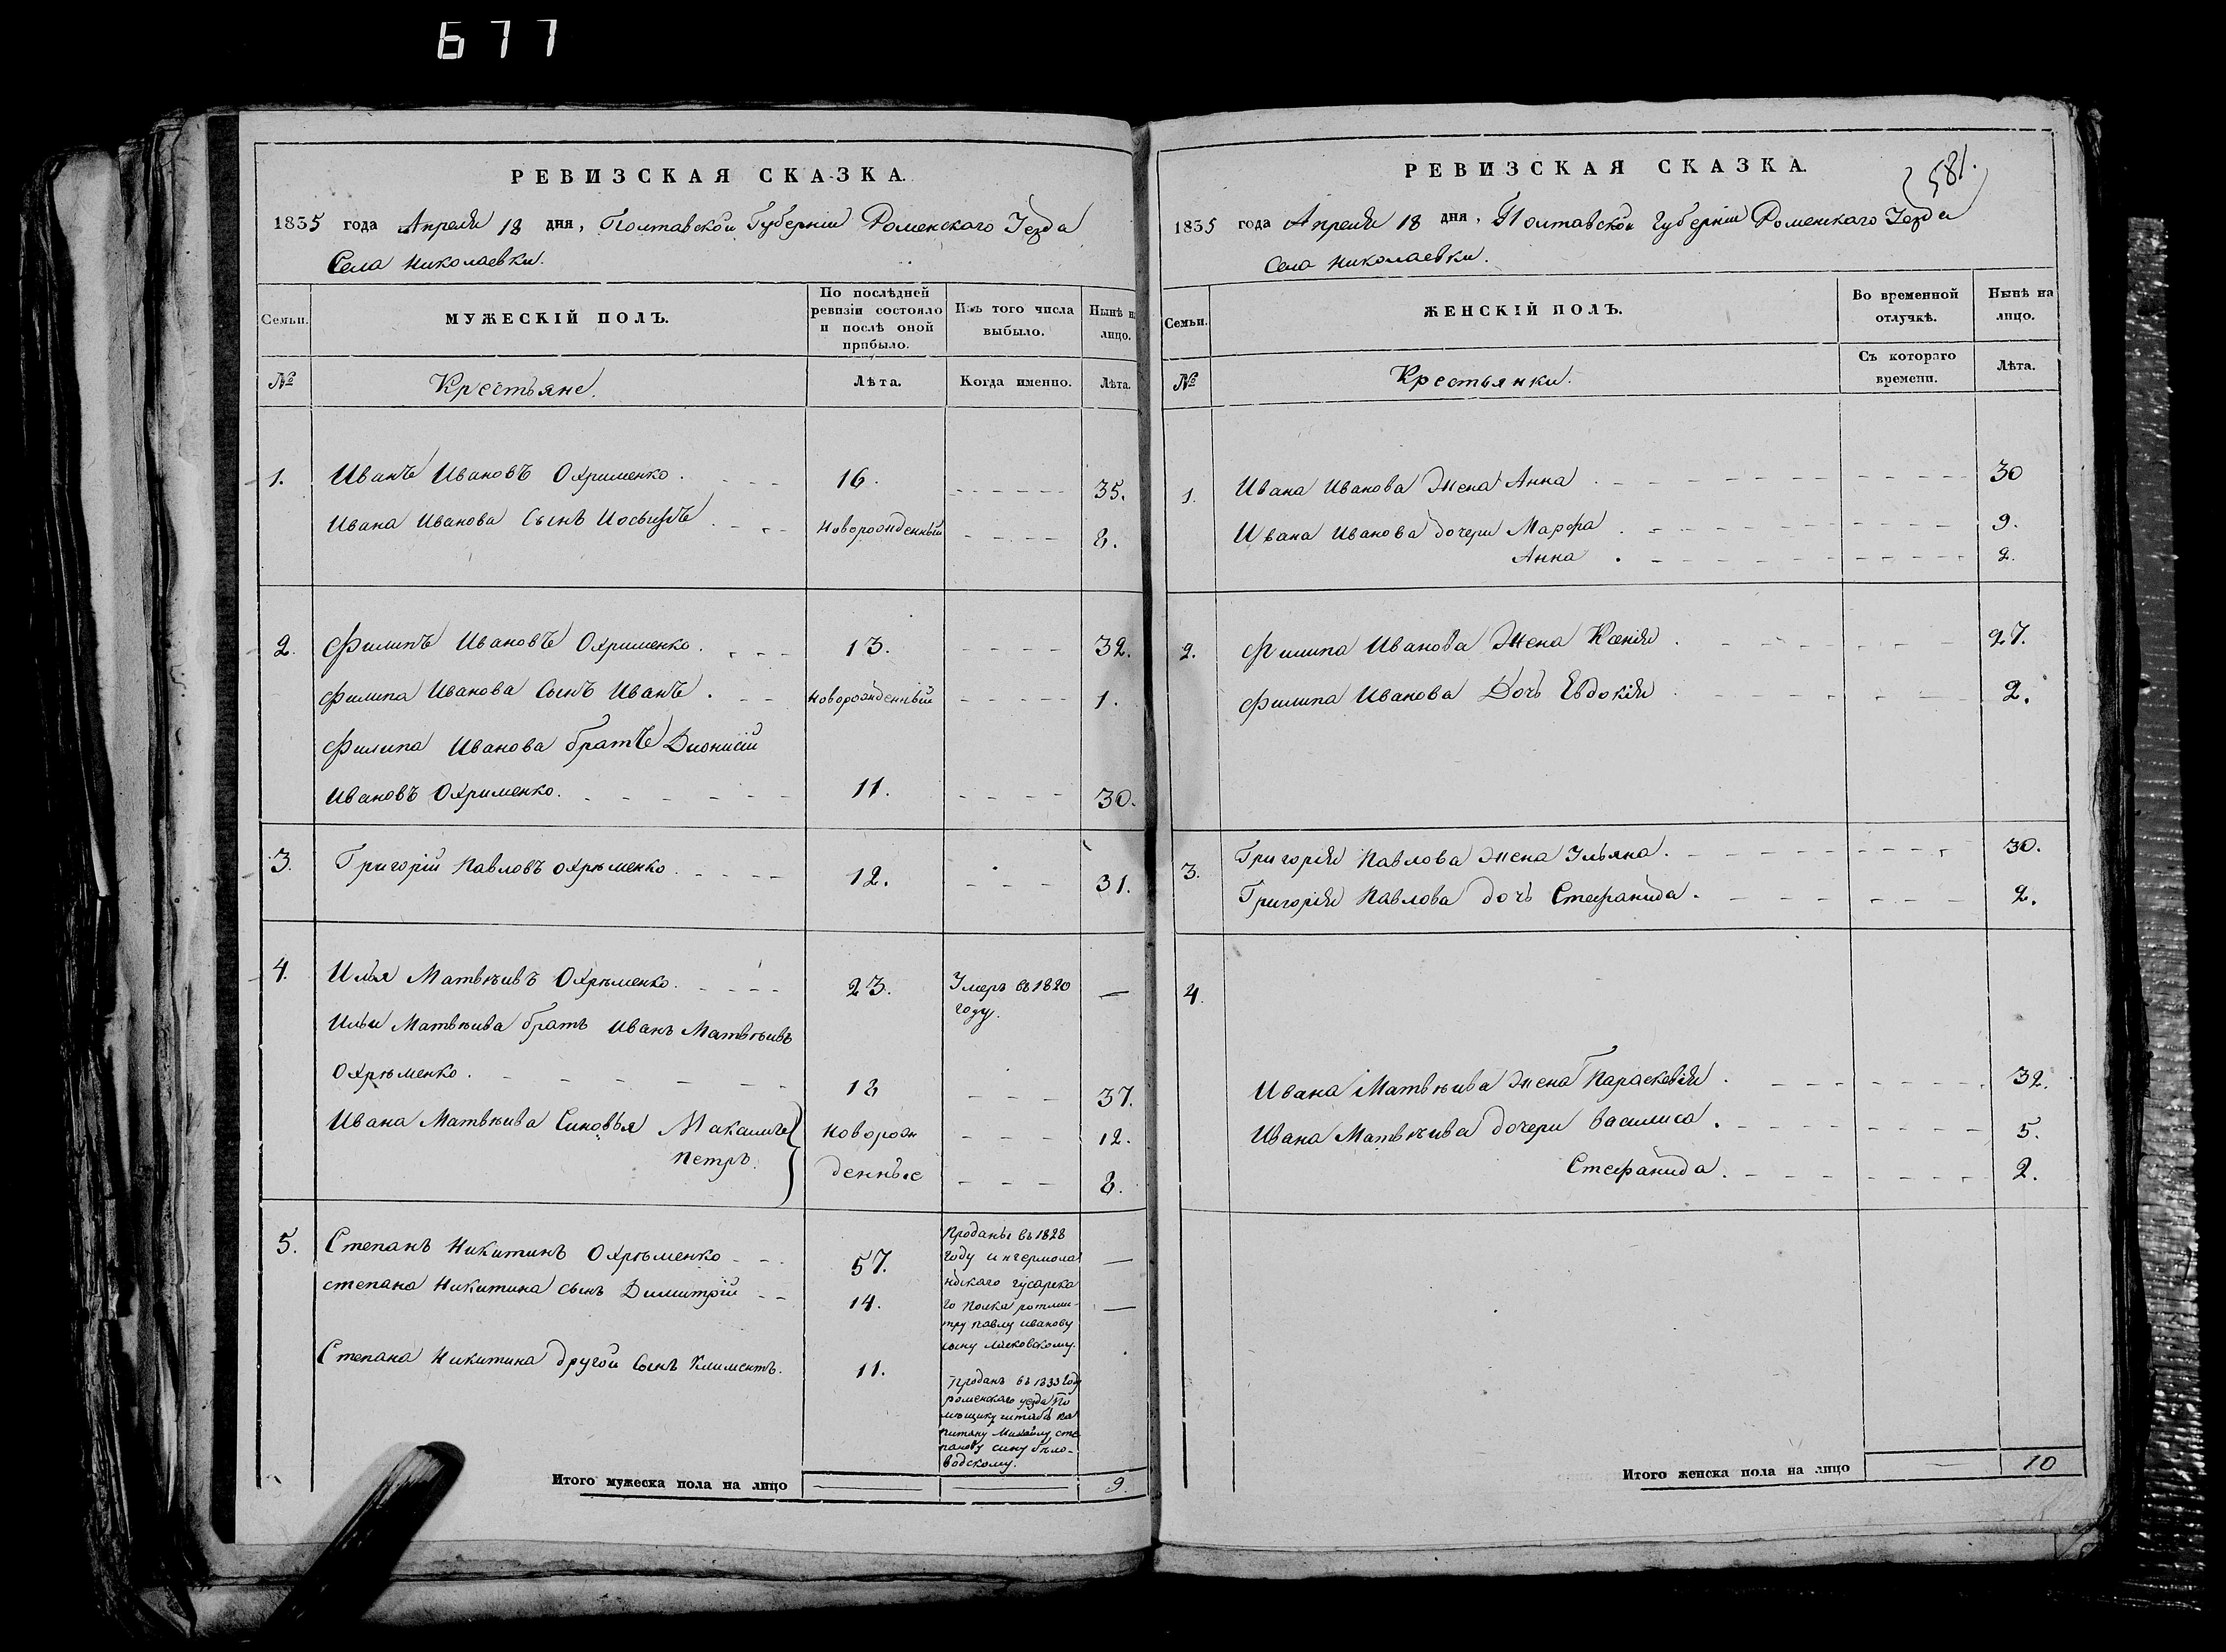 677
РЕВИЗСКАЯ СКАЗКА.
1835 года Апреля 18 дня, Полтавской Губернии Роменского Уезда
Села Николаевки.
Семьи.
МУЖЕСКІЙ ПОЛЪ.
По послѣдней
ревизіи состояло
и послѣ оной
прибыло.
Изъ того числа
выбыло.
Нынѣ на
лицо.
№
Крестьяне.
Лѣта.
Когда именно.
Лѣта.
1. Иванъ Ивановъ Охрименко. 16. 35.
Ивана Иванова Сынъ Иосыфъ. Новорожденный 8.
2. Филипъ Ивановъ Охрименко. 13. 32.
Филипа Иванова Сынъ Иванъ. Новорожденный 1.
Филипа Иванова братъ Дионисій
Ивановъ Охрименко. 11. 30.
3. Григорій Павловъ Охрѣменко. 12. 31.
4. Илья Матвѣивъ Охрѣменко. 23. Умеръ въ 1820 —
году.
Ильи Матвѣива братъ Иванъ Матвѣивъ
Охрѣменко. 18 37.
Ивана Матвѣива Синовья Макаимъ Новорож 12.
Петръ. денные 8.
5. Степанъ Никитинъ Охрѣменко 57. —
Степана Никитина сынъ Димитрій 14. —
Проданы въ 1828
году ингермола
ндскаго гусарска
го полка ротми-
тру Павлу Иванову
сыну
Степана Никитина другой Сынъ Климентъ. 11.
Проданъ въ 1833 году
роменского уезда По
мѣщику штабъ ка
питану Михайлу сте
панову сину бѣло-
водскому.
Итого мужеска пола на лицо 9.
581.
РЕВИЗСКАЯ СКАЗКА.
1835 года Апреля 18 дня, Полтавской Губерніи Роменскаго Уезда
Села Николаевки.
Семьи.
ЖЕНСКІЙ ПОЛЪ.
Во временной
отлучкѣ.
Нынѣ на
лицо.
№
Крестьянки.
Съ котораго
времени.
Лѣта.
1. Ивана Иванова Жена Анна 30
Ивана Иванова дочери Марфа 9.
Анна 2.
2. Филипа Иванова Жена Ксенія 27.
Филипа Иванова Дочь Евдокія 2.
3. Григорія Павлова жена Ульяна. 30.
Григорія Павлова дочь Стефанида. 2.
4.
Ивана Матвѣива жена Параскевія 32.
Ивана Матвѣива дочери Василиса. 5.
Стефанида. 2.
Итого женска пола на лицо — 10